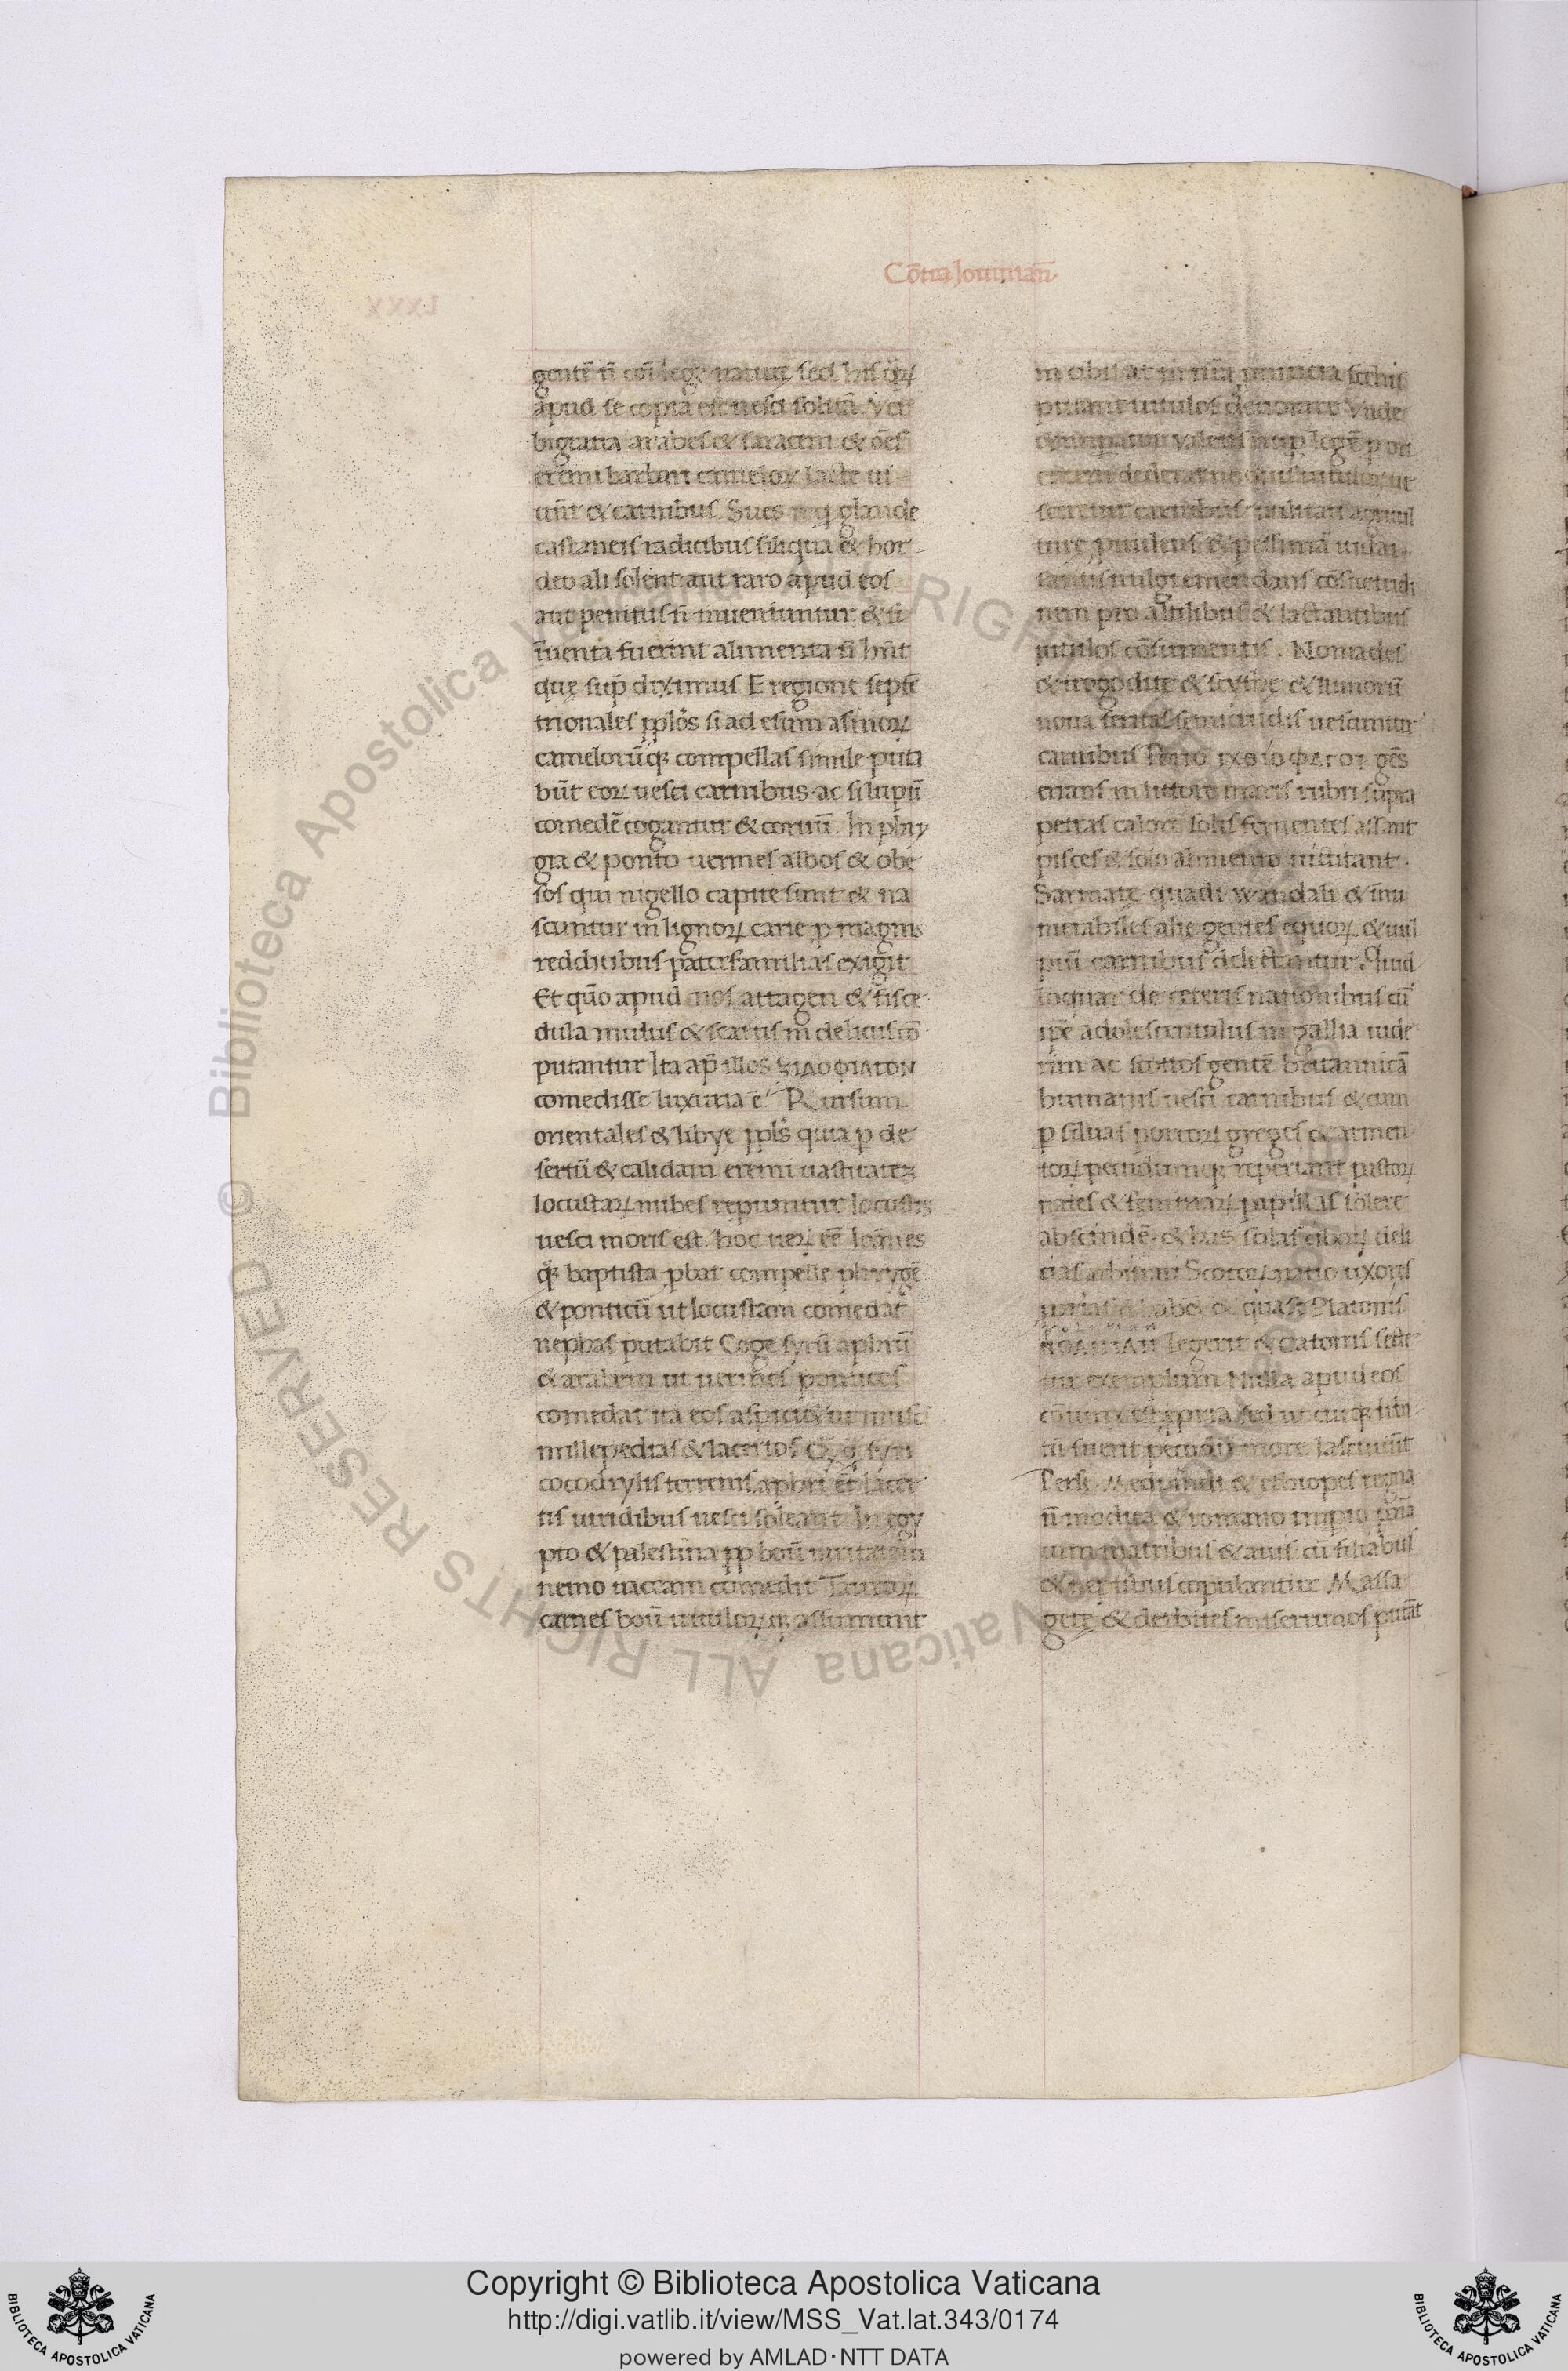 Cōtra Iouinian̄
gentē n̄ cōi lege nature sed his qꝝ
apud se copia est uesci solitā. Ver
bi gratia arabes & saraceni & oēs
eremi barbari cameloꝝ lacte ui
uūt & carnibus. Sues glande
castaneis radicibus siliqua & hor
deo ali solent aut raro apud eos
aut penitus n̄ inueniuntur & si
īuenta fuerint alimenta n̄ hn̄t
que sup̄ diximus E regione septē
trionales ppl̄os si ad esum asinoꝝ
camelorūqꝫ compellas simile puta
būt eoꝝ uesci carnibus ac si lupū
comedē cogantur & coruū. In phry
gia & ponto uermes albos & obe
sos qui nigello capite sunt & na
scuntur in lignoꝝ carie p magnis
redditibus paterfamilias exigit
Et quō apud nos attagen & fice
dula mulus & scarus in deliciis cō
putantur Ita ap̄ illos ΞΙΛΟΦΙΛΓΟΝ
comedisse luxuria ē. Rursum
orientales & libye ppl̄s quia p de
sertū & calidam eremi uastitatē
locustaꝝ nubes repiuntur locustis
uesci moris est. hoc ueꝝ eē Ioānes
qꝫ baptista pbat compelle phrygē
& ponticū ut locustam comedat
nephas putabit Coge syrū aphrū
& arabem ut uermes ponticos
comedat ita eos aspiciet ut muscas
millepedias & lacertos syri
cocodrylis terrenis aphri et lacer
tis uiridibus uesci soleant. In egy
pto & palestina pp boū raritatem
nemo uaccam comedit Tauroꝝ
carnes boū uituloꝝqꝫ assumunt
in cibis at in nr̄a
putant uitulos deuorare Vnde
& imperator valens nup legē p ori
entem dederat ne quis uitulorum
carnibus utilitati agricul
ture prouidens & pessimā iudai
zantis uulgi emendans cōsuetudi
nem pro altilibus & lactantibus
uitulos cōsumentis. Nomades
& trogodite & scythe & hunorū
noua feritas semicrudis uescuntur
carnibus Porro ΙΧΘΙΟΦΑΓΟΙ gēs
errans in littore maris rubri supra
petras calore solis feruentes assant
pisces & solo alimento uictitant.
Sarmate quadi wandali & īnu
merabiles alie gentes equoꝝ & uul
piū carnibus delectantur Quid
loquar de ceteris nationibus cū
ipe adolescentulus in gallia uide
rim ac scottos gentē britannicā
humanis uesci carnibus & cum
p siluas porcoꝝ greges & armen
toꝝ pecudumqꝫ reperiant pastoꝝ
nates & feminaꝝ papillas solere
abscindē & has solas ciboꝝ deli
cias arbitrari Scottoꝝ natio uxores
ꝓprias n̄ habet & quasi Platonis
legerit & Catonis secte
tur exemplum Nulla apud eos
cōiunx est ꝓpria sed ut cuiqꝫ libi
tū fuerit pecudū more lasciuiūt
Perse Medi indi & ethiopes regna
n̄ modica & romano impio
cum matribus & auis cū filiabus
& neptibus copulantur Massa
gete & derbites miserrimos putāt